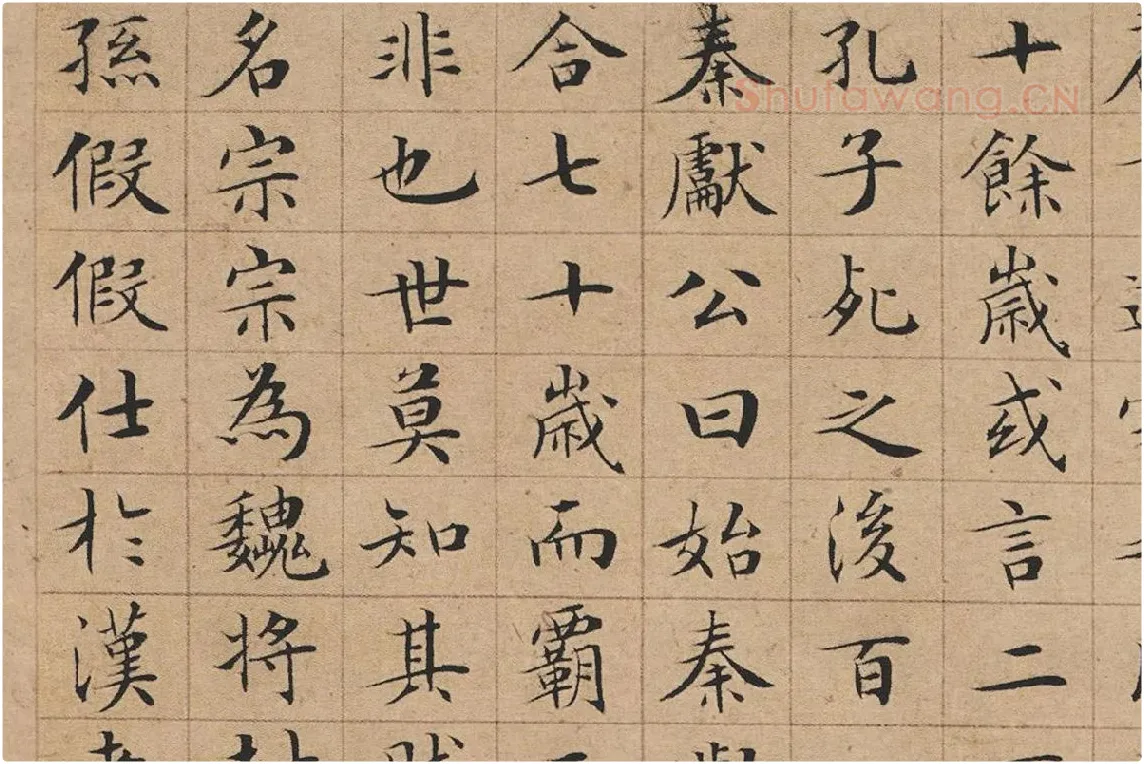 十餘歲或言二
孔子死之後百
秦獻公曰始秦
合七十歲而霸
非也世莫知其
名宗宗為魏將
孫假假仕於漢
Shufawang.CN